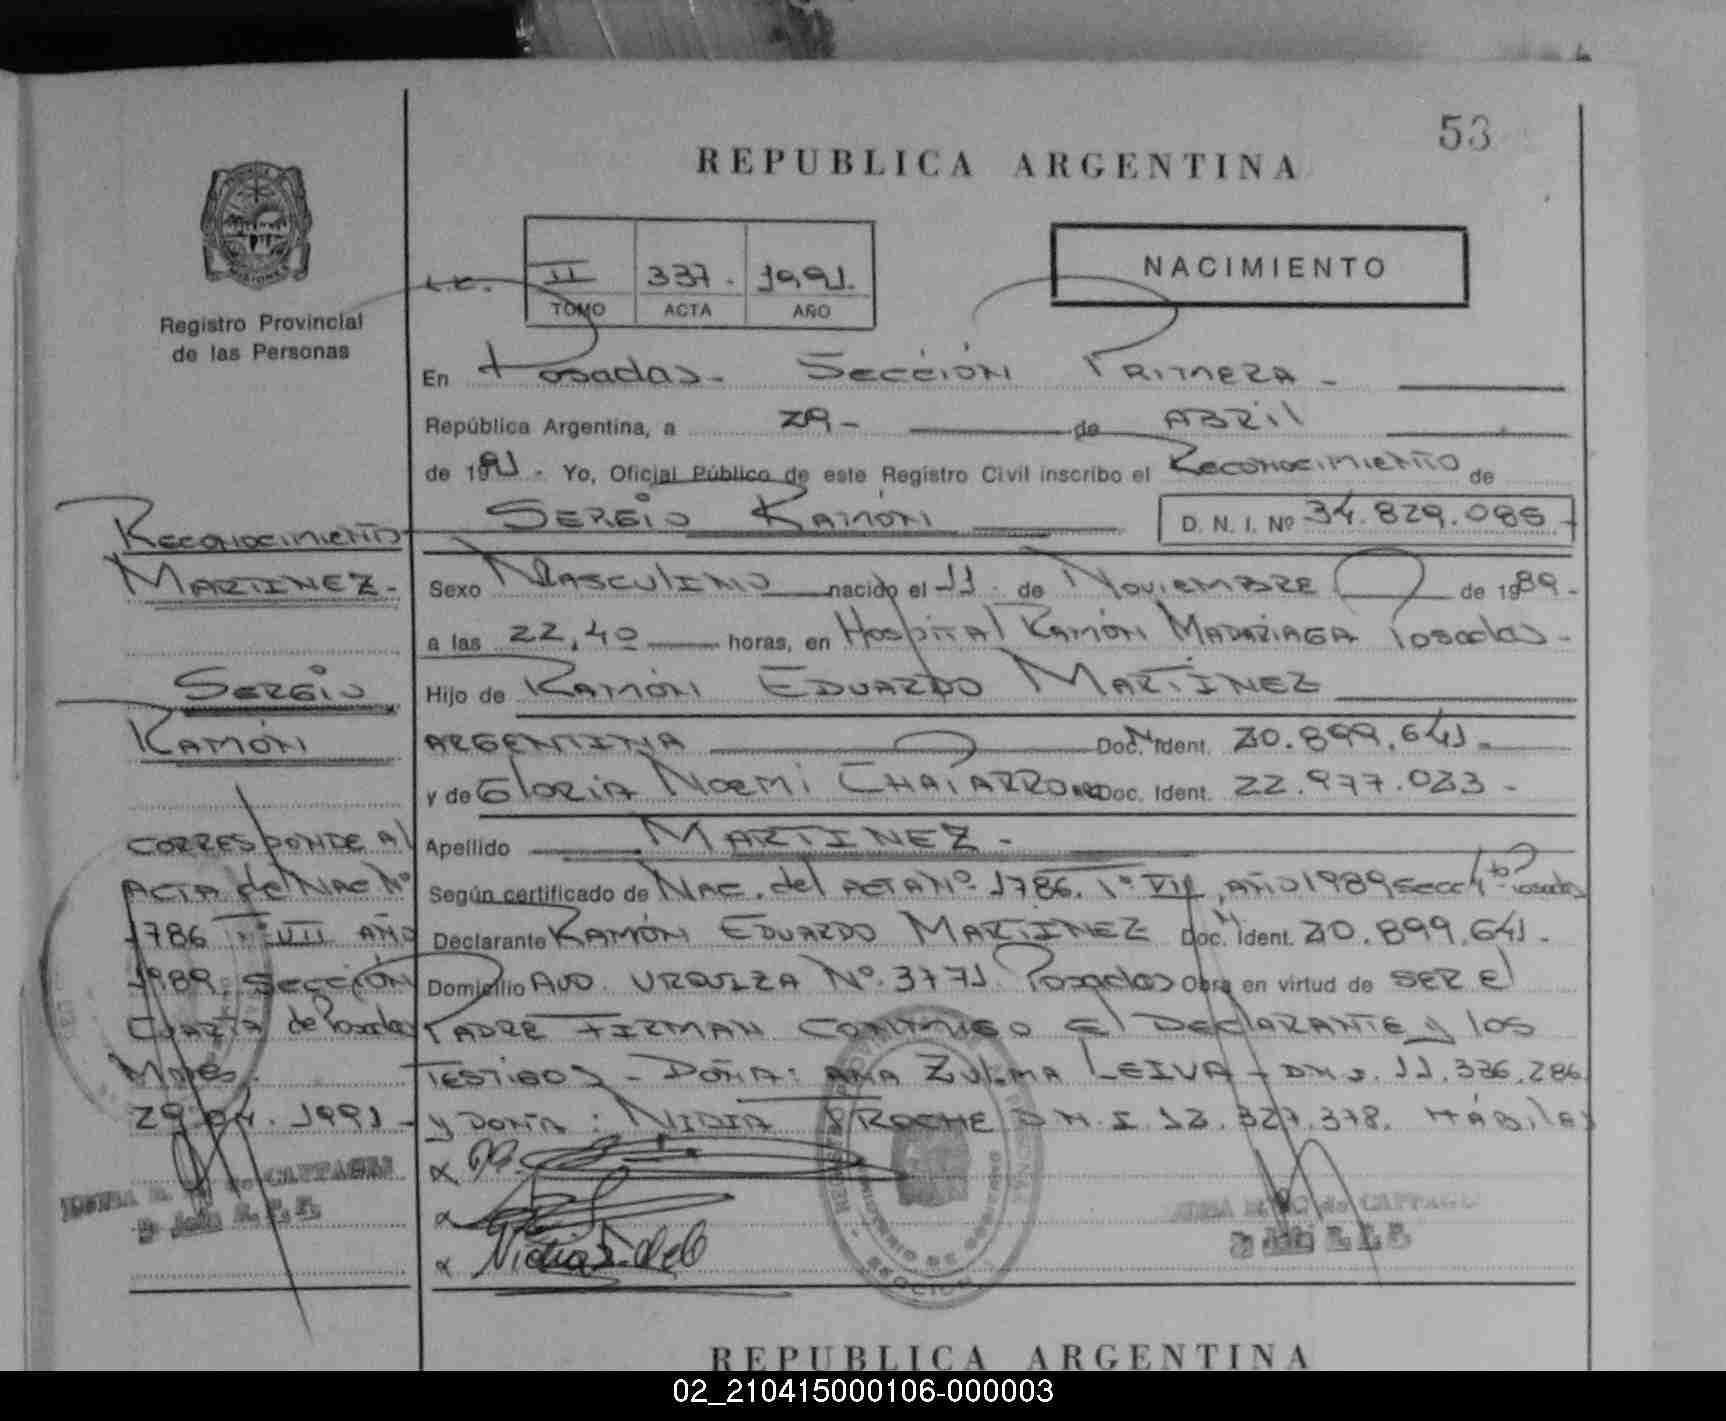 53
REPUBLICA ARGENTINA
Registro Provincial
de las Personas
II 337. 1991.
TOMO ACTA AÑO
NACIMIENTO
En Posadas - Sección Primera -
República Argentina, a 29 - de ABRIL
de 1991 - Yo, Oficial Público de este Registro Civil inscribo el Reconocimiento de
Sergio Ramón D. N. I. Nº 34.829.085 -
Sexo Masculino nacido el 11 de Noviembre de 1989 -
a las 22,40 horas, en Hospital Ramón Madariaga Posadas -
Hijo de Ramón Eduardo Martínez
Argentina Doc. N. Ident. 20.899.641 -
y de Gloria Noemi Doc. Ident. 22.977.023 -
Apellido MARTINEZ -
Según certificado de Nac. del acta Nº 1786. Tº VII, año 1989 Secc 4ta Posadas
Declarante Ramón Eduardo Martínez Doc. N. Ident. 20.899.641 -
Domicilio Avd. Urquiza Nº 3771 Posadas Obra en virtud de ser el
padre firman conmigo el declarante y los
testigos - Doña: Ana Zulma Leiva - DNI. 11.336.286
y Doña: Nidia Roche D.N.I. 12.327.378. Hábiles
Reconocimiento
MARTINEZ -
Sergio
Ramón
Corresponde al
acta de Nac Nº
1786 Tº VII año
1989 Sección
Cuarta de Posadas
Mnes.
29.04.1991 -
REPUBLICA ARGENTINA
02_210415000106-000003